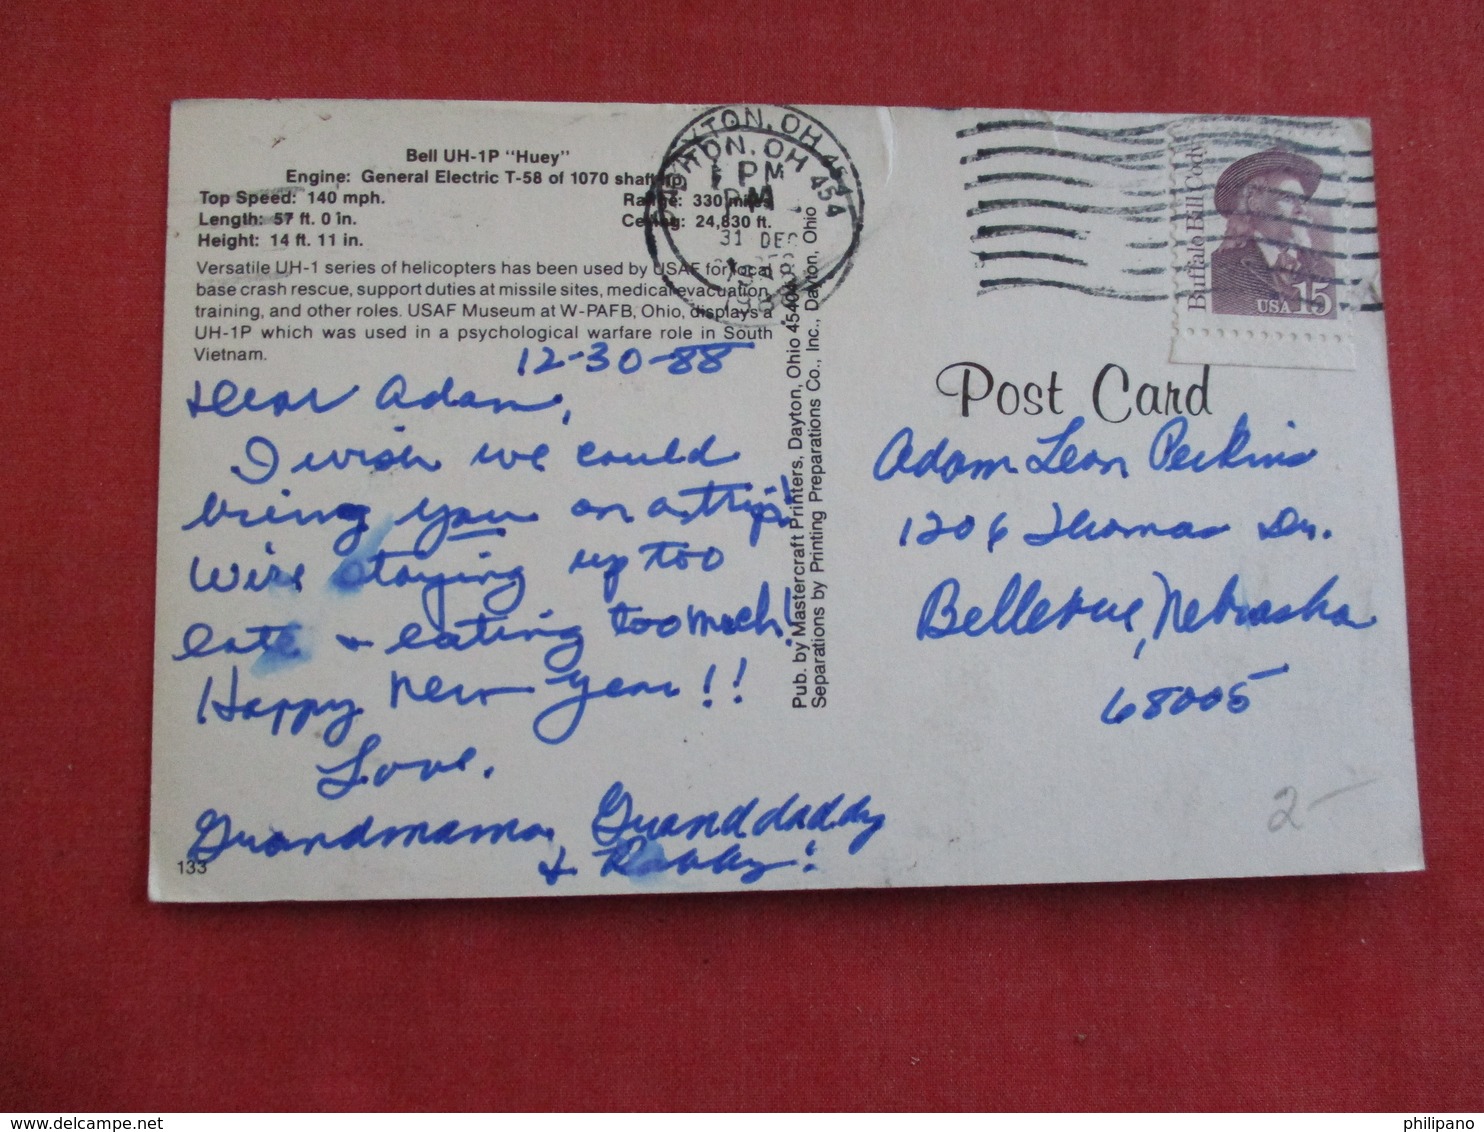 Bell UH-1P "Huey"
Engine: General Electric T-58 of 1070 shaft hp
Top Speed: 140 mph.
Range: 330 miles
Length: 57 ft. 0 in.
Ceiling: 24,830 ft.
Height: 14 ft. 11 in.
Versatile UH-1 series of helicopters has been used by USAF for local
base crash rescue, support duties at missile sites, medical evacuation,
training, and other roles. USAF Museum at W-PAFB, Ohio, displays a
UH-1P which was used in a psychological warfare role in South
Vietnam.
12-30-88
Dear Adam,
I wish we could
bring you on a trip!
We're staying up too
late & eating too much!
Happy New Year!!
Love,
Grandmama, Granddaddy
& Robby!
133
Pub. by Mastercraft Printers, Dayton, Ohio 45404
Separations by Printing Preparations Co., Inc., Dayton, Ohio
DAYTON, OH 454
PM
31 DEC
Buffalo Bill Cody
USA 15
Post Card
Adam Leon Perkins
1206 Thomas Dr.
Bellevue, Nebraska
68005
2-
philipano
www.delcampe.net